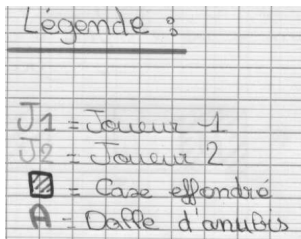 Légende :
J1 = Joueur 1
J2 = Joueur 2
= Case effondré
A = Dalle d'anubis